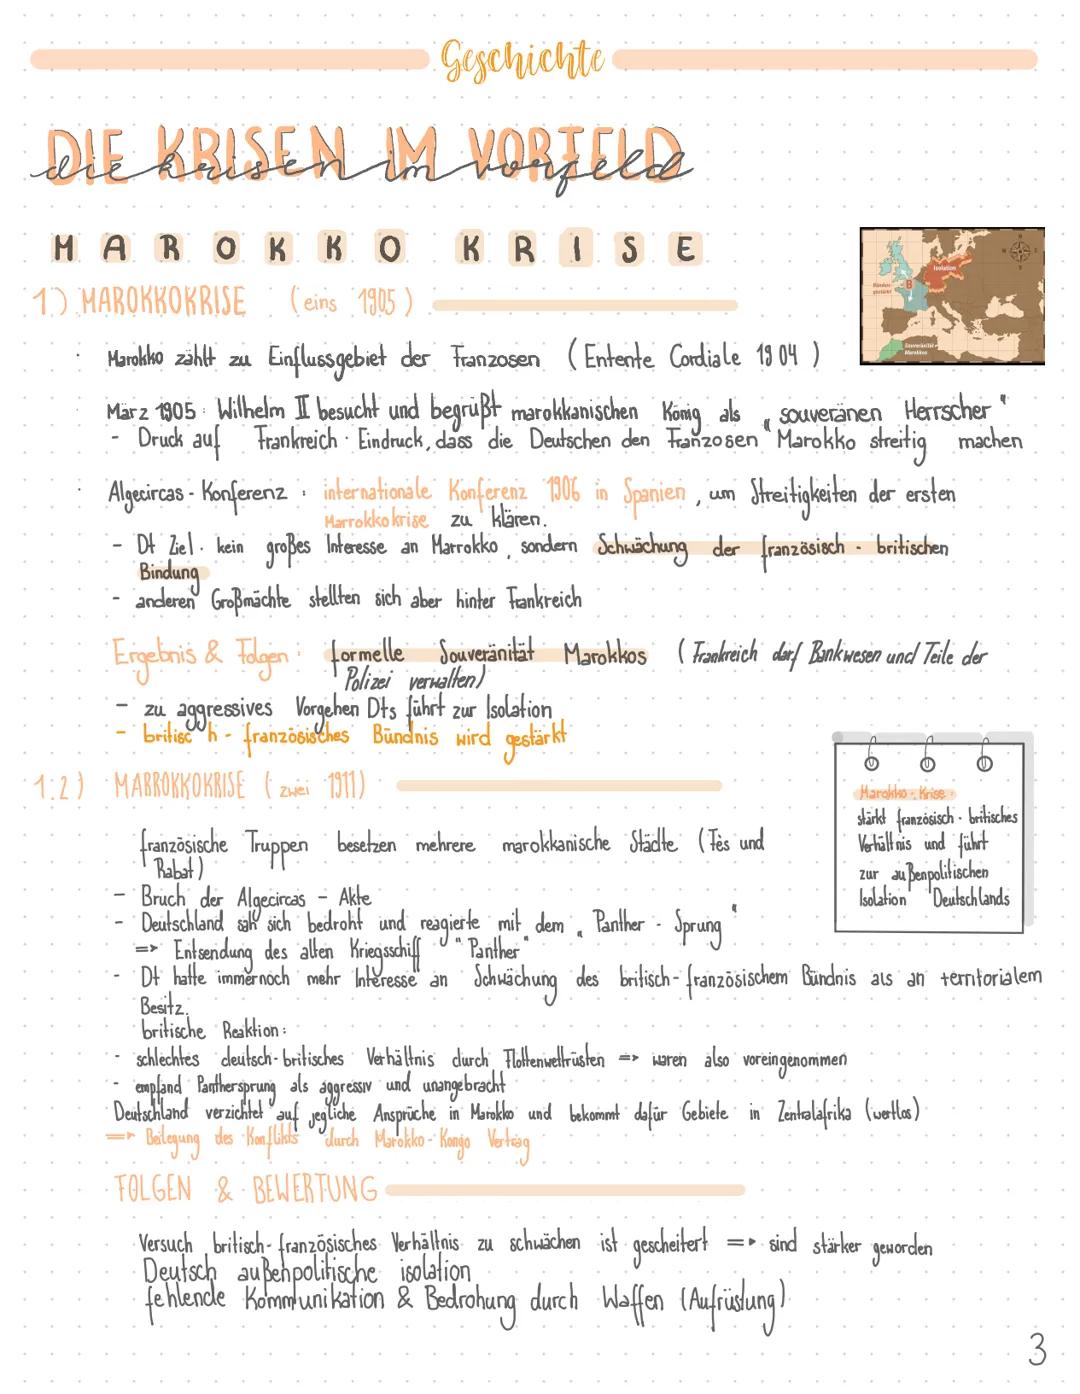 Geschichte
DIE KRISEN IM VORFELD
die krisen im vorfeld
MAROKKO KRISE
1.) MAROKKOKRISE (eins 1905)
Isolation
Bündnis gestärkt
Souveränität Marokkos
Marokko zählt zu Einflussgebiet der Franzosen (Entente Cordiale 1904)
März 1905: Wilhelm II besucht und begrüßt marokkanischen König als „souveränen Herrscher"
- Druck auf Frankreich: Eindruck, dass die Deutschen den Franzosen Marokko streitig machen
Algecircas - Konferenz: internationale Konferenz 1906 in Spanien, um Streitigkeiten der ersten
Marrokkokrise zu klären.
- Dt Ziel: kein großes Interesse an Marrokko, sondern Schwächung der französisch - britischen
Bindung
- anderen Großmächte stellten sich aber hinter Frankreich
Ergebnis & Folgen: formelle Souveränität Marokkos (Frankreich darf Bankwesen und Teile der
Polizei verwalten)
- zu aggressives Vorgehen Dts führt zur Isolation
- britisc h - französisches Bündnis wird gestärkt
1.2) MARROKKOKRISE (zwei 1911)
Marokko - Krise:
stärkt französisch - britisches
Verhältnis und führt
zur außenpolitischen
Isolation Deutschlands
französische Truppen besetzen mehrere marokkanische Städte (Fès und
Rabat)
- Bruch der Algecircas - Akte
- Deutschland sah sich bedroht und reagierte mit dem „Panther - Sprung"
=> Entsendung des alten Kriegsschiff "Panther"
- Dt hatte immernoch mehr Interesse an Schwächung des britisch-französischem Bündnis als an territorialem
Besitz.
britische Reaktion:
- schlechtes deutsch-britisches Verhältnis durch Flottenwettrüsten => waren also voreingenommen
- empfand Panthersprung als aggressiv und unangebracht
Deutschland verzichtet auf jegliche Ansprüche in Marokko und bekommt dafür Gebiete in Zentralafrika (wertlos)
=> Beilegung des Konflikts durch Marokko-Kongo Vertrag
FOLGEN & BEWERTUNG
Versuch britisch-französisches Verhältnis zu schwächen ist gescheitert => sind stärker geworden
Deutsch außenpolitische isolation
fehlende Kommunikation & Bedrohung durch Waffen (Aufrüstung)
3